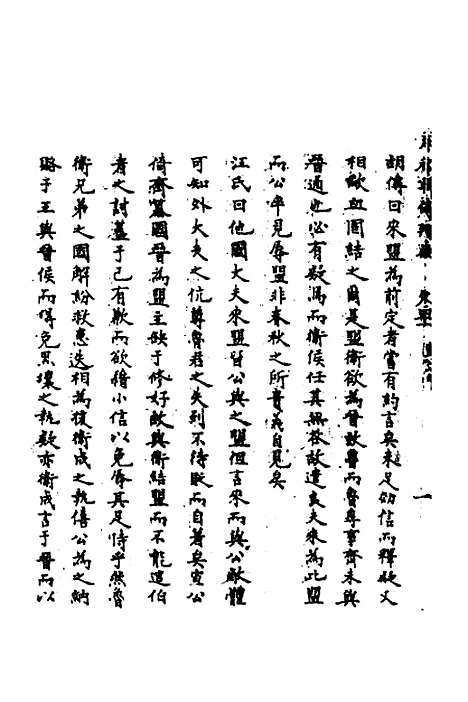 胡傳曰來盟為前定者嘗有約言矣未足効信而釋疑又
相歃血固結之爾是盟衛欲為晉致魯而魯専事齊未與
晉通也必有疑焉而衛侯任其無咎故遣良夫來為此盟
而公卒見辱盟非春秋之所貴義自見矣
汪氏曰他國大夫來盟皆公與之盟但言來而與公敵體
可知外大夫之伉尊魯君之失列不待貶而自著矣宣公
倚齊簒國晉為盟主缺于修好故與衛結盟而不能遣伯
者之討蓋于己有歉而欲藉小信以免辱其足恃乎然魯
衛兄弟之國解紛救患迭相為援衛成之執僖公為之納
賂于王與晉侯而得免黒壤之執敖亦衛成言于晉而以